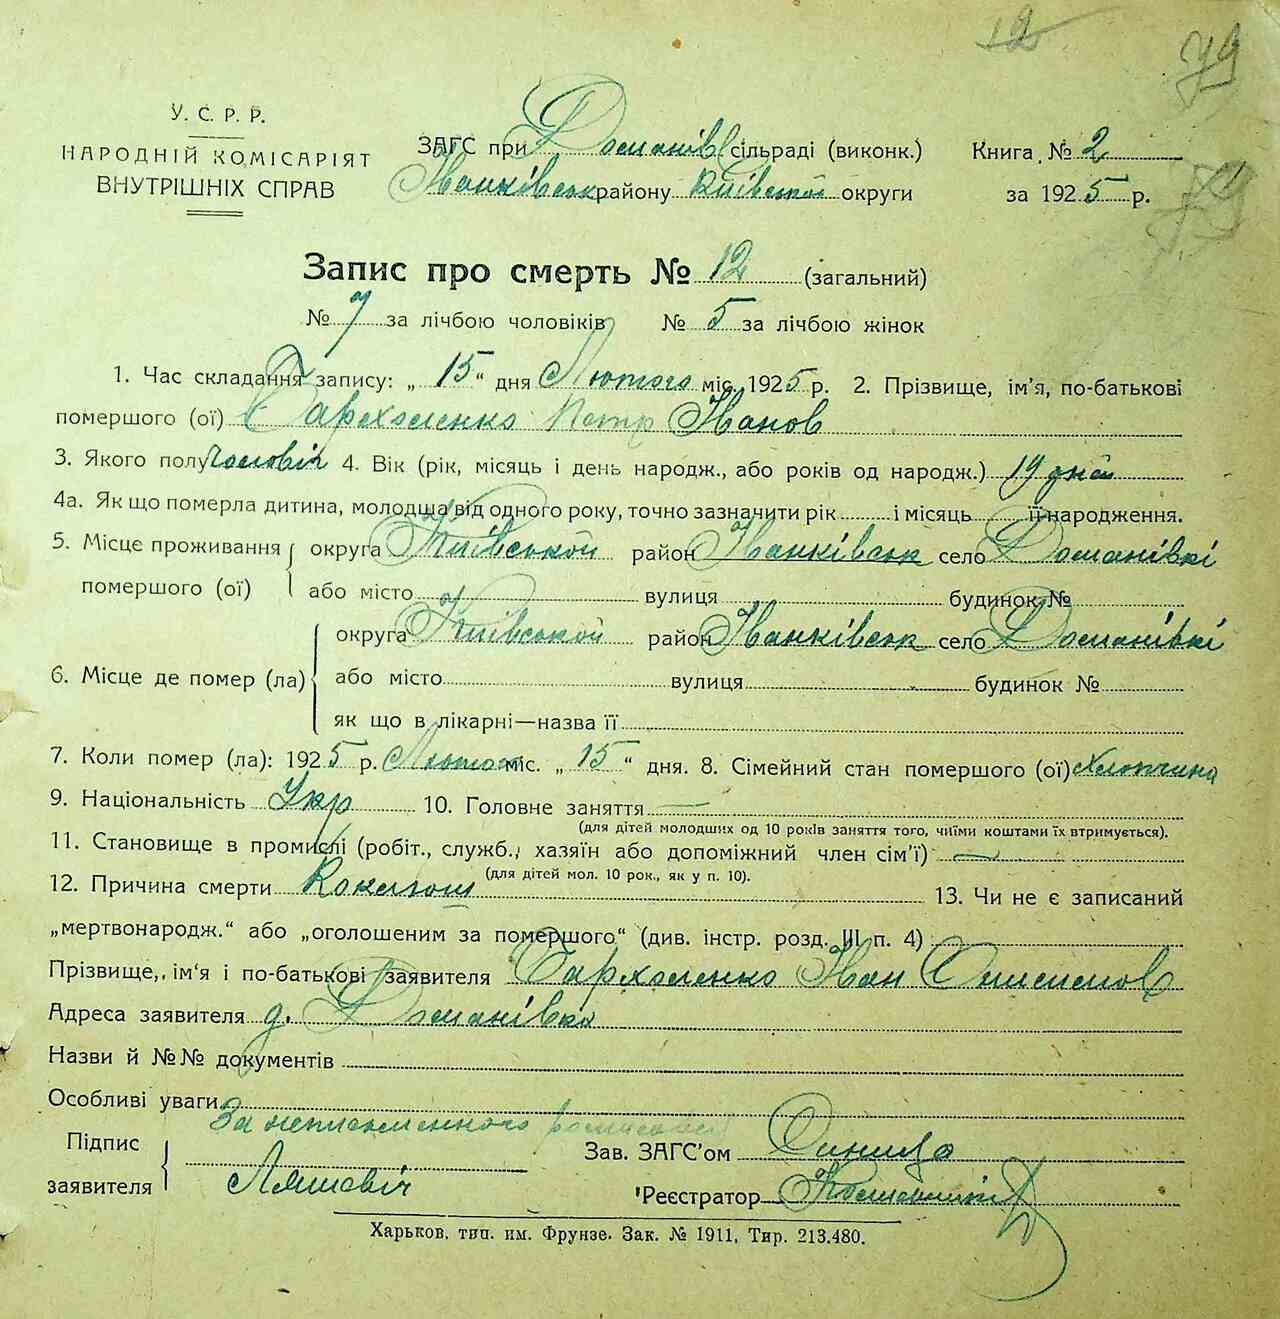 12
79
У. С. Р. Р.
НАРОДНІЙ КОМІСАРІЯТ
ВНУТРІШНІХ СПРАВ
ЗАГС при Доманівс. сільраді (виконк.)
Іванківськ району Київської округи
Книга № 2
за 1925 р.
79
Запис про смерть № 12 (загальний)
№ 7 за лічбою чоловіків № 5 за лічбою жінок
1. Час складання запису: „ 15 “ дня Лютого міс. 1925 р. 2. Прізвище, ім'я, по-батькові
помершого (ої) Пархоменко Петр Іванов
3. Якого полу чоловіч 4. Вік (рік, місяць і день народж., або років од народж.) 19 дней
4а. Як що померла дитина, молодша від одного року, точно зазначити рік і місяць її народження.
5. Місце проживання округа Київської район Іванківськ село Доманівкі
помершого (ої) або місто вулиця будинок №
округа Київської район Іванківськ село Доманівкі
6. Місце де помер (ла) або місто вулиця будинок №
як що в лікарні—назва її
7. Коли помер (ла): 1925 р. Лютого міс. „ 15 “ дня. 8. Сімейний стан помершого (ої) хлопчина
9. Національність Укр 10. Головне заняття —
(для дітей молодших од 10 років заняття того, чиїми коштами їх втримується).
11. Становище в промислі (робіт., служб., хазяїн або допоміжний член сім'ї) —
(для дітей мол. 10 рок., як у п. 10).
12. Причина смерти Коклюш 13. Чи не є записаний
„мертвонародж.“ або „оголошеним за помершого“ (див. інстр. розд. III п. 4)
Прізвище, ім'я і по-батькові заявителя Пархоменко Іван
Адреса заявителя д. Доманівка
Назви й №№ документів
Особливі уваги
За неписьменного
Підпис
заявителя Ляшевіч
Зав. ЗАГС'ом
Реєстратор
Харьков, тип. им. Фрунзе. Зак. № 1911, Тир. 213.480.